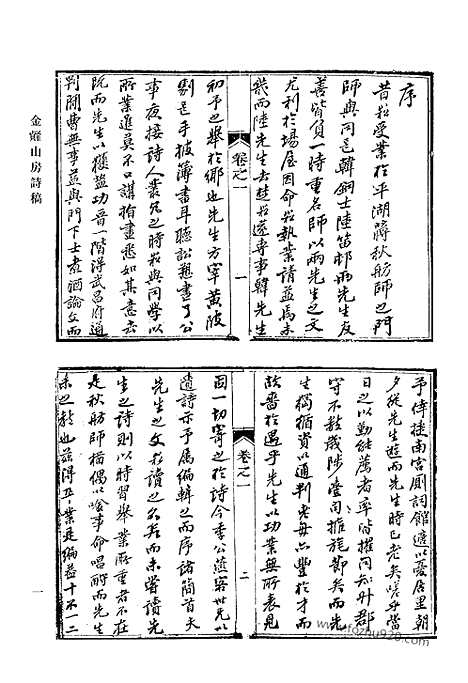 序
昔莪受業於平湖蔣秋舫師之門
師與同邑韓銅士陸笛邨兩先生友
善皆負一時重名師以兩先生之文
尤利於場屋因命莪執業請益焉未
幾而陸先生去楚莪遂專事韓先生
卷之一
一
初予之舉於鄉也先生方宰黃陂
劇邑手披簿書耳聽訟牘晝了公
事夜接詩人叢咒之時莪與同學以
所業進莫不口講指畫悉如其意去
既而先生以獲盜功晉一階得武昌府通
判閒曹無事益與門下士煮酒論文而
予倖捷南宮廁詞館適以憂居里朝
夕從先生遊而先生時已老矣嗟乎當
日之以勤能薦者率皆擢同知升郡
守不數歲陟臺司推旄節矣而先
生獨循資以通判老毋亦豐於才而
故嗇於遇乎先生以功業無所表見
卷之一
二
固一切寄之於詩今季公蓮案世兄以
遺詩示予属編輯之而序諸簡首夫
先生之文莪讀之久矣而未嘗讀先
生之詩則以時習舉業所重者不在
是秋舫師楷偶以喻事命唱酬而先生
未之教也茲得卒業是編蓋十不一二
金
山房詩稿
一